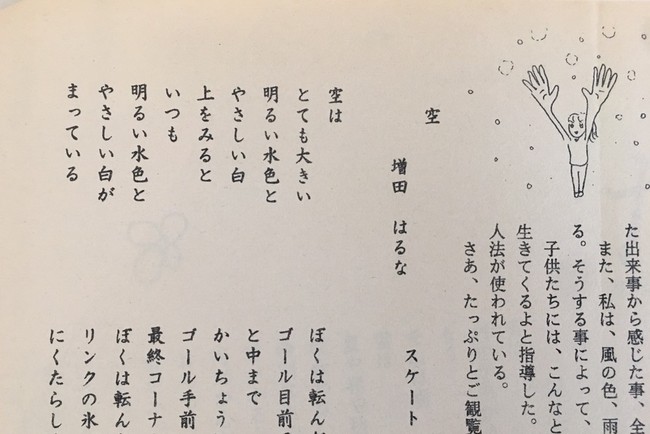 た出来事から感じた事、全
また、私は、風の色、雨
る。そうする事によって、
子供たちには、こんなと
生きてくるよと指導した。
人法が使われている。
さあ、たっぷりとご観覧
空
増田 はるな
空は
とても大きい
明るい水色と
やさしい白
上をみると
いつも
明るい水色と
やさしい白が
まっている
スケート
ぼくは転ん
ゴール目前
と中まで
かいちょう
ゴール手前
最終コーナ
ぼくは転ん
リンクの氷
にくたらし